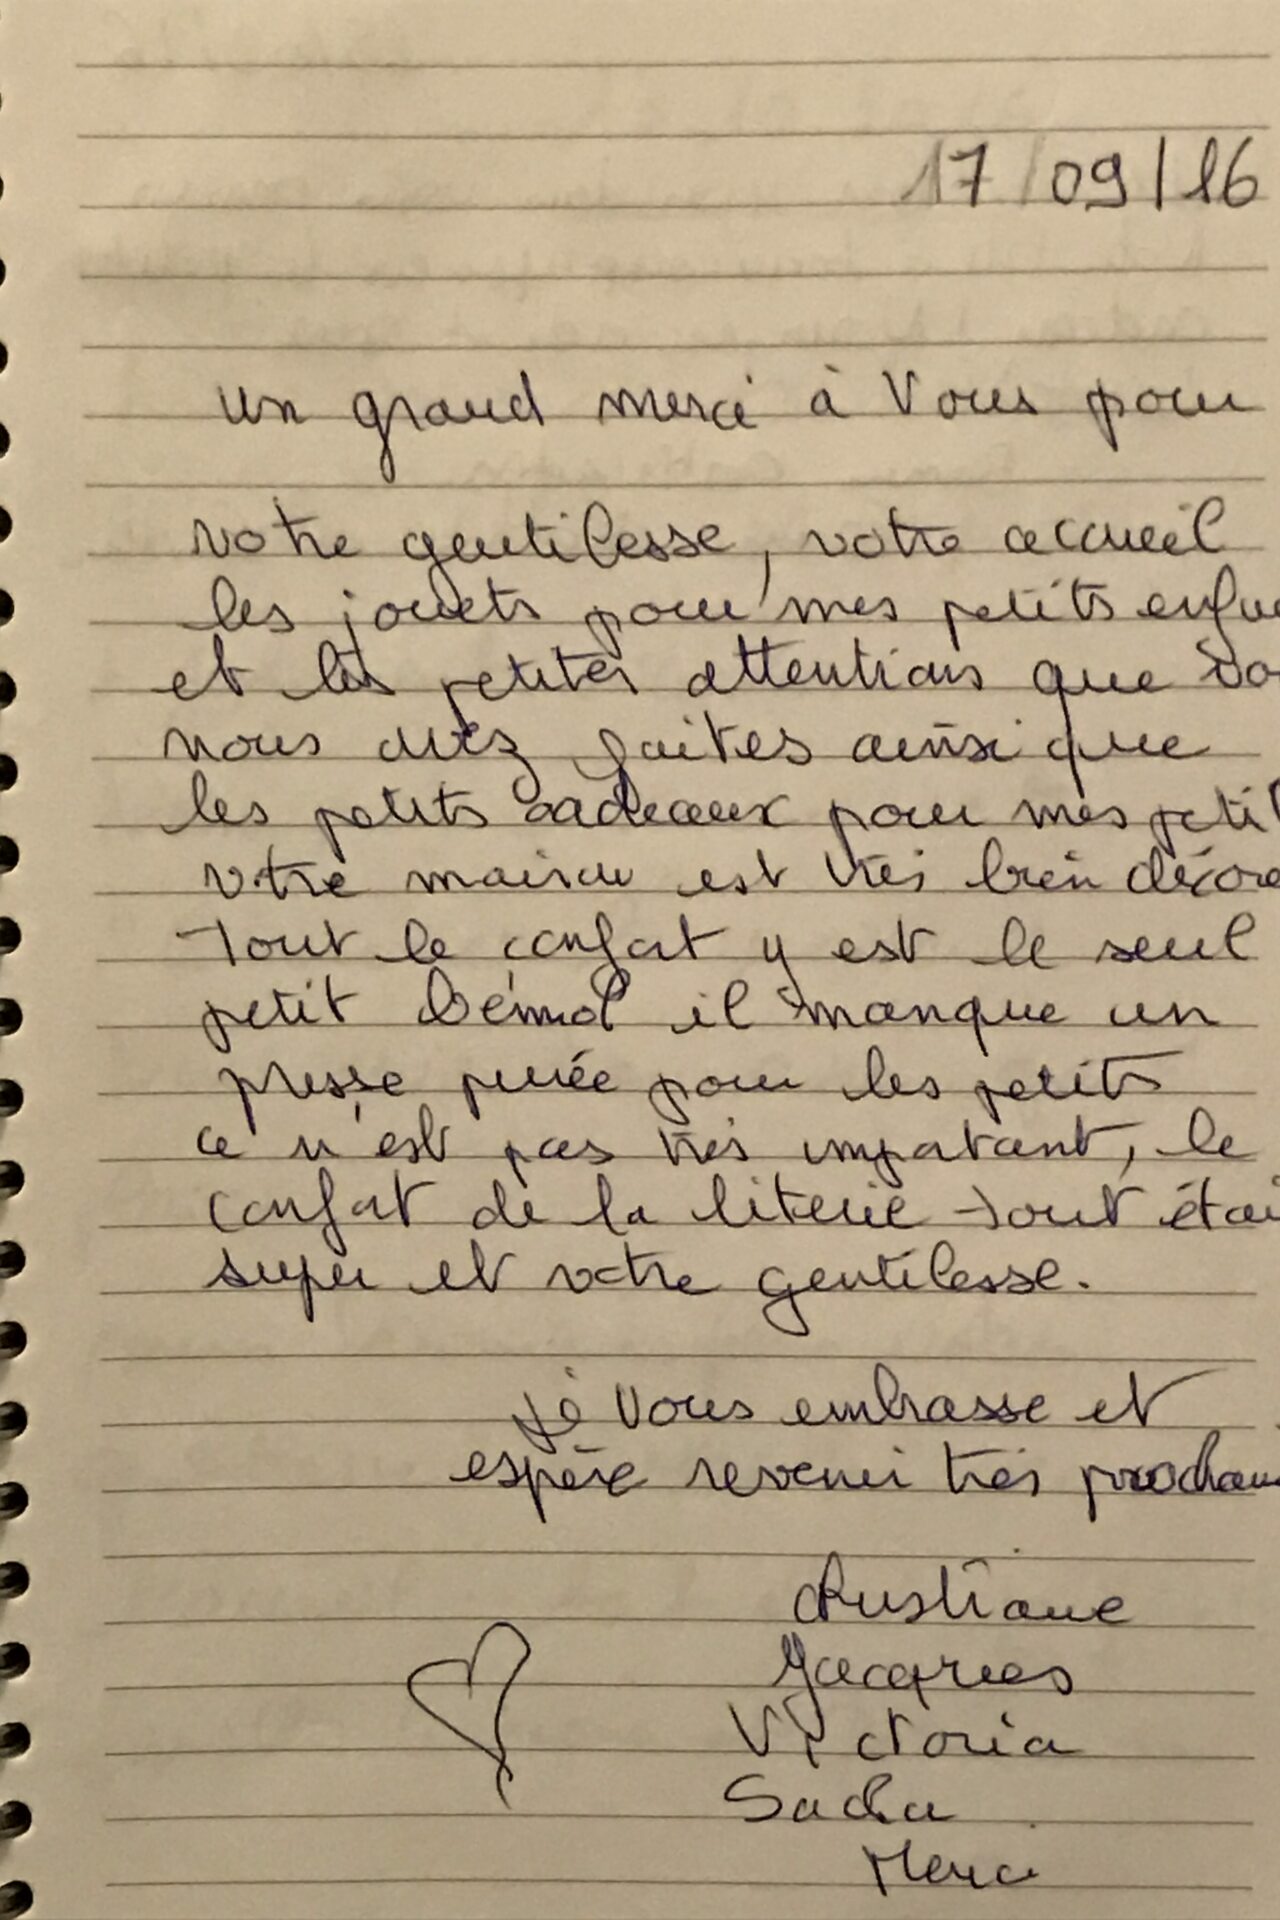 17/09/16
un grand merci à Vous pour
votre gentilesse, votre accueil
les jouets pour mes petits enfan
et les petites attentions que vou
nous avez faites ainsi que
les petits cadeaux pour mes petit
votre maison est très bien décore
Tout le confort y est le seul
petit bémol il manque un
presse purée pour les petits
ce n'est pas très important, le
confort de la literie tout étai
super et votre gentilesse.
Je Vous embrasse et
espère revenir très prochain
Christiane
Jacques
Victoria
Sacha
Merci